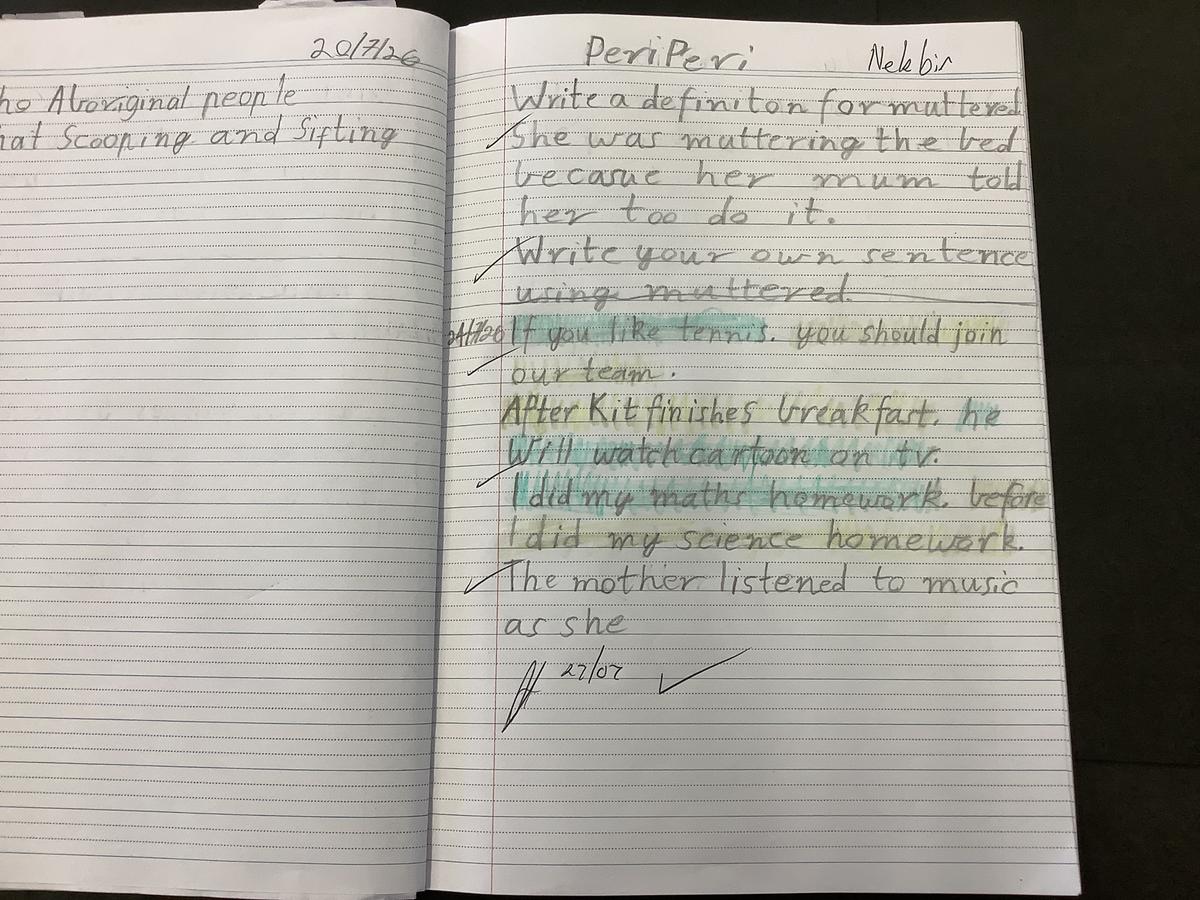 20/7/26
ho Aboriginal people
hat Scooping and Sifting
PeriPeri
Nekbir
Write a definiton for muttered
She was muttering the bed
becasue her mum told
her too do it.
Write your own sentence
using muttered.
24/7/26 If you like tennis. you should join
our team.
After Kit finishes breakfast. he
Will watch cartoon on tv.
I did my maths homework. before
I did my science homework.
The mother listened to music
as she
27/07